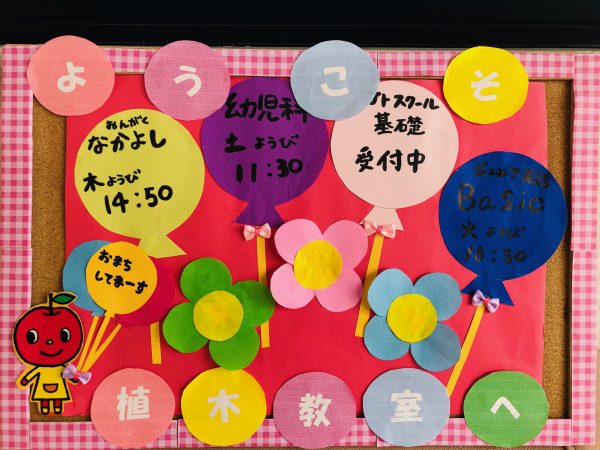 ようこそ
おんがく
なかよし
木ようび
14:50
幼児科
土ようび
11:30
トスクール
基礎
受付中
ジュニア
Basic
火ようび
16:30
おまち
してまーす
植木教室へ